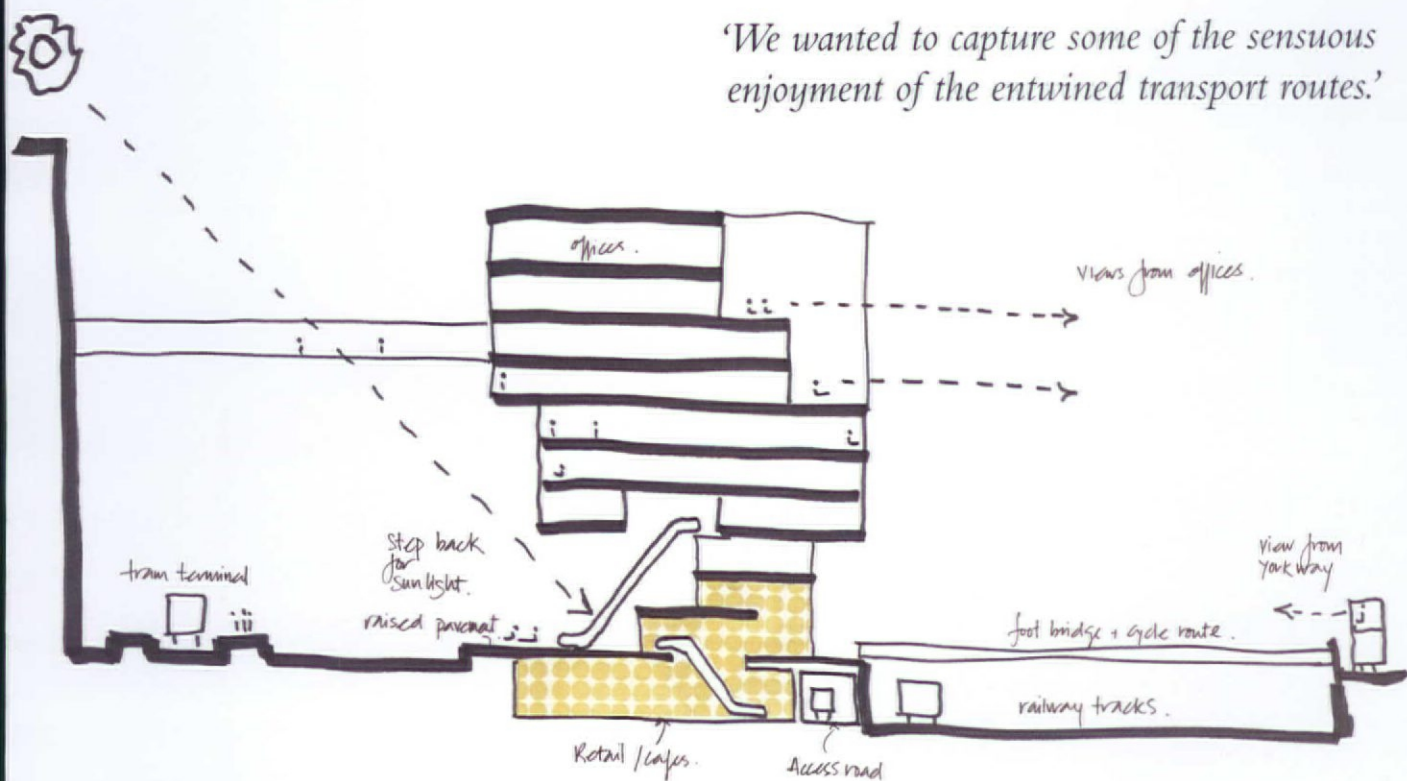 ‘We wanted to capture some of the sensuous
enjoyment of the entwined transport routes.’
offices.
views from offices.
Step back
for
sunlight.
tram terminal
raised pavement.
view from
York way
foot bridge + cycle route.
railway tracks.
Retail / cafes.
Access road